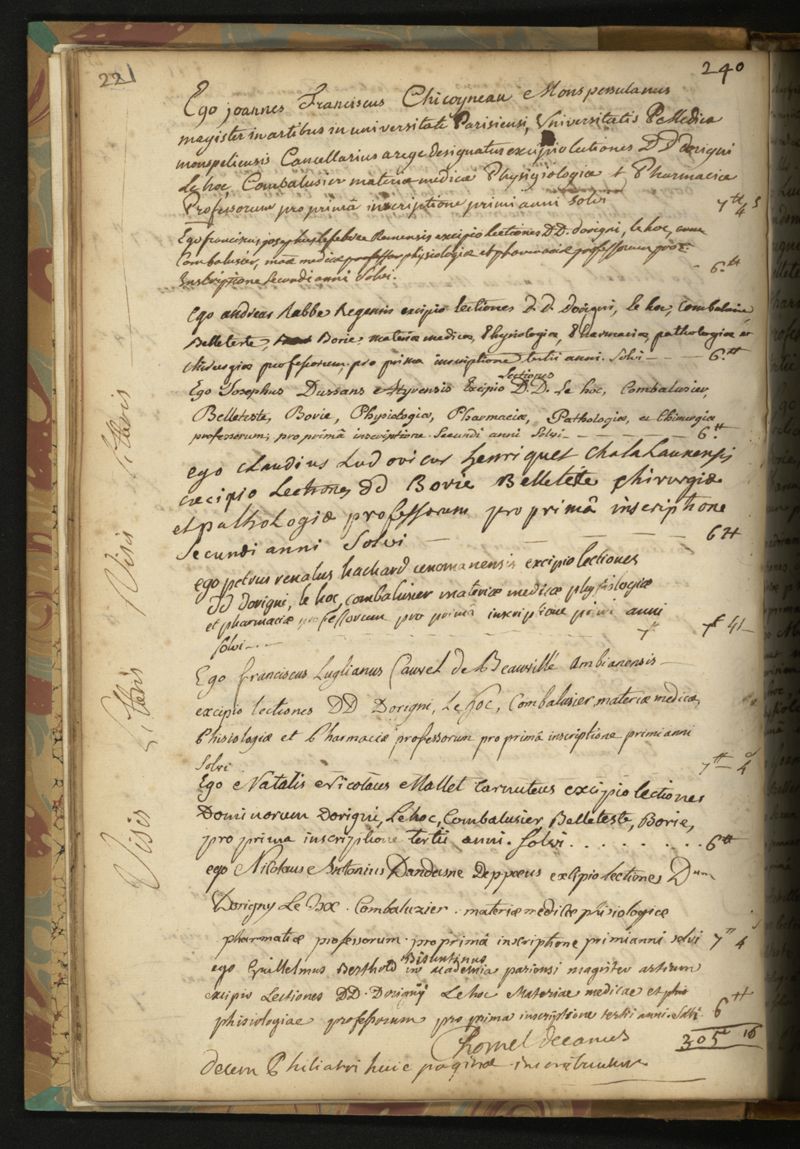 221
240
Ego Joannes Franciscus Chicoyneau Monspessulanus
magister in artibus in universitate Parisiensi, Universitatis Medica
monspeliensis Cancellarius a rege designatus excipio lectiones DD dorigni
Le hoc, Combalusier materiæ medicæ Physiologiæ et Pharmaciæ
Professorum pro primâ inscriptione primi anni solvi 7 tt 4 s
Ego franciscus, josephus Lefebvre Remensis excipio lectiones D.D. dorigni, le hoc,
Combalusier, mæ medicæ physiologiæ et pharmaciæ professorum pro
Inscriptione secundi anni Solvi. 6. tt
Ego andreas Rabbe Regensis excipio lectiones D. D. Dorigni, le hoc, Combalusier
Belleteste, Borie materiæ medicæ, Physiologiæ, Pharmaciæ, pathologiæ et
chirurgiæ professorum. pro prima inscriptione tertii anni. Solvi 6. tt
Ego Josephus Dussans excipio lectiones D.D. Le hoc, Combalusier,
Belleteste, Borie, Physiologiæ, Pharmaciæ, Pathologiæ, et Chirurgiæ
professorum; pro primâ inscriptione. Secundi anni Solvi 6. tt
ego claudius Ludovicus henriquet
excipio Lectiones dd Borie Belletête chirurgiæ
et pathologiæ professorum pro primâ inscriptione
Secundi anni Solvi 6 tt
ego petrus renatus hachard cenomanensis excipio lectiones
dd dorigni, le hoc, combalusier materiæ medicæ physiologiæ
et pharmaciæ professorum pro primâ inscriptione primi anni
solvi
Ego franciscus Luglianus Cauvel de Beauvillé Ambianensis
excipio lectiones DD Dorigni, Le hoc, Combalusier, materiæ medicæ,
Phisiologiæ et Pharmaciæ professorum pro primâ inscriptione primi anni
Solvi 7 tt 4
Ego Natalis Nicolaus Mallet Carnuteus excipio lectiones
Dominorum Dorigni, Lehoc, Combalusier, Belleteste, Borie,
pro prima inscriptione tertii anni. Solvi 6 tt
ego Nicolaus Antonius excipio lectiones
Dorigny Le hoc. Combaluzier. materiæ medicæ phisiologicæ
pharmatiæ professorum. pro primâ inscriptione primi anni solvi 7 tt 4
ego Guillelmus Berthold Bisuntinus in academia magister artium
excipio Lectiones DD. Dorigny Lehoc Materiae medicae et
phisiologiae professorum pro prima inscriptione tertii anni. 6 tt
Chomel decanus
305 16
decem Philiatri huic paginæ
Visis Litteris Visis Litteris